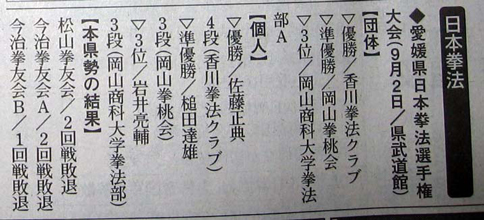 日本拳法
◆愛媛県日本拳法選手権
大会(9月2日/県武道館)
【団体】
▽優勝/香川拳法クラブ
▽準優勝/岡山拳桃会
▽3位/岡山商科大学拳法
部A
【個人】
▽優勝/佐藤正典
4段(香川拳法クラブ)
▽準優勝/槌田達雄
3段(岡山拳桃会)
▽3位/岩井亮輔
3段(岡山商科大学拳法部)
【本県勢の結果】
松山拳友会/2回戦敗退
今治拳友会A/2回戦敗退
今治拳友会B/1回戦敗退